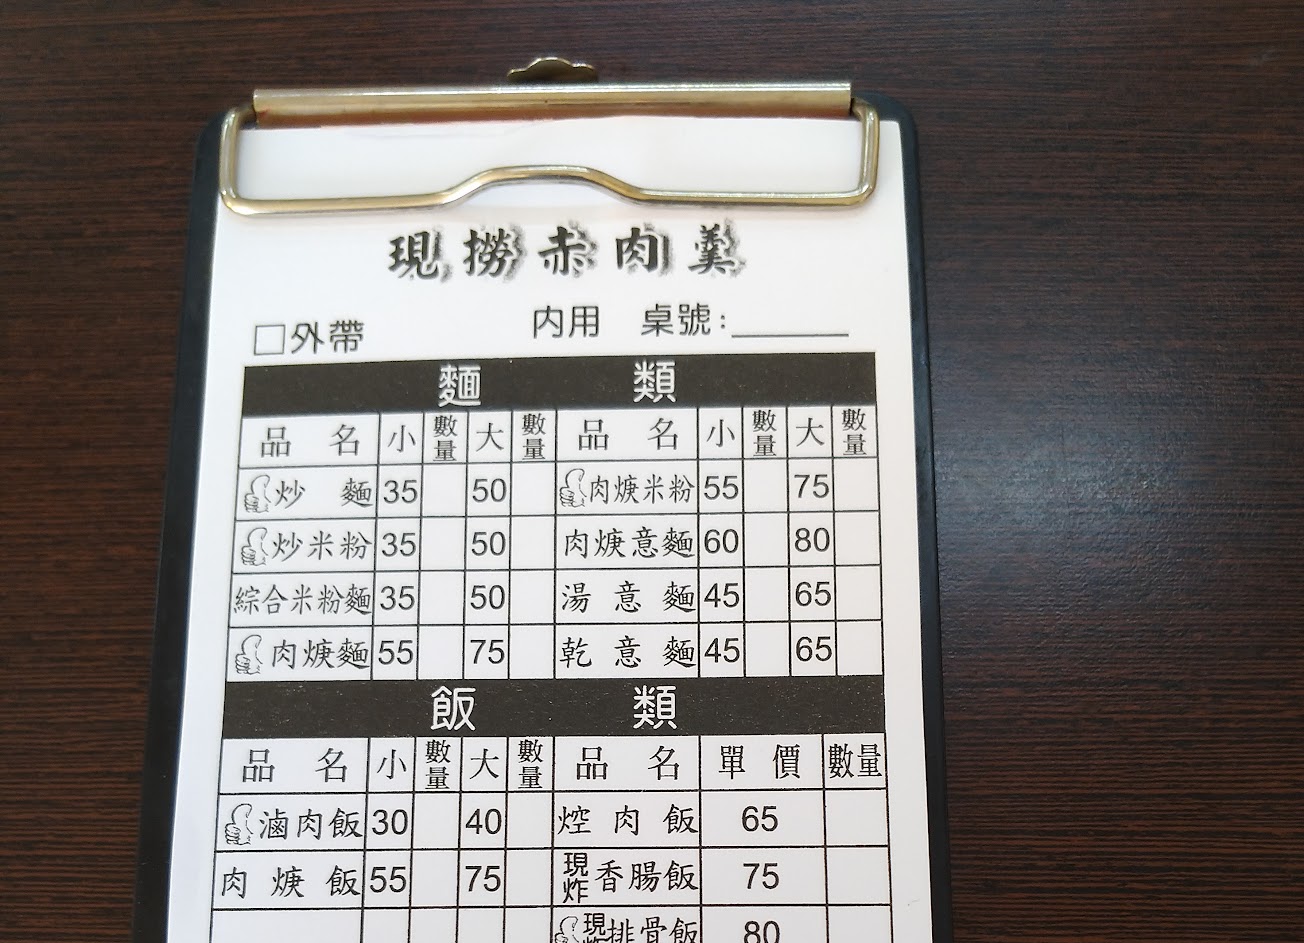 現撈赤肉羹
□外帶 內用 桌號:______
麵 類
品 名 小 數量 大 數量 品 名 小 數量 大 數量
炒 麵 35 50 肉焿米粉 55 75
炒米粉 35 50 肉焿意麵 60 80
綜合米粉麵 35 50 湯意麵 45 65
肉焿麵 55 75 乾意麵 45 65
飯 類
品 名 小 數量 大 數量 品 名 單價 數量
滷肉飯 30 40 焢肉飯 65
肉焿飯 55 75 現炸香腸飯 75
現炸排骨飯 80